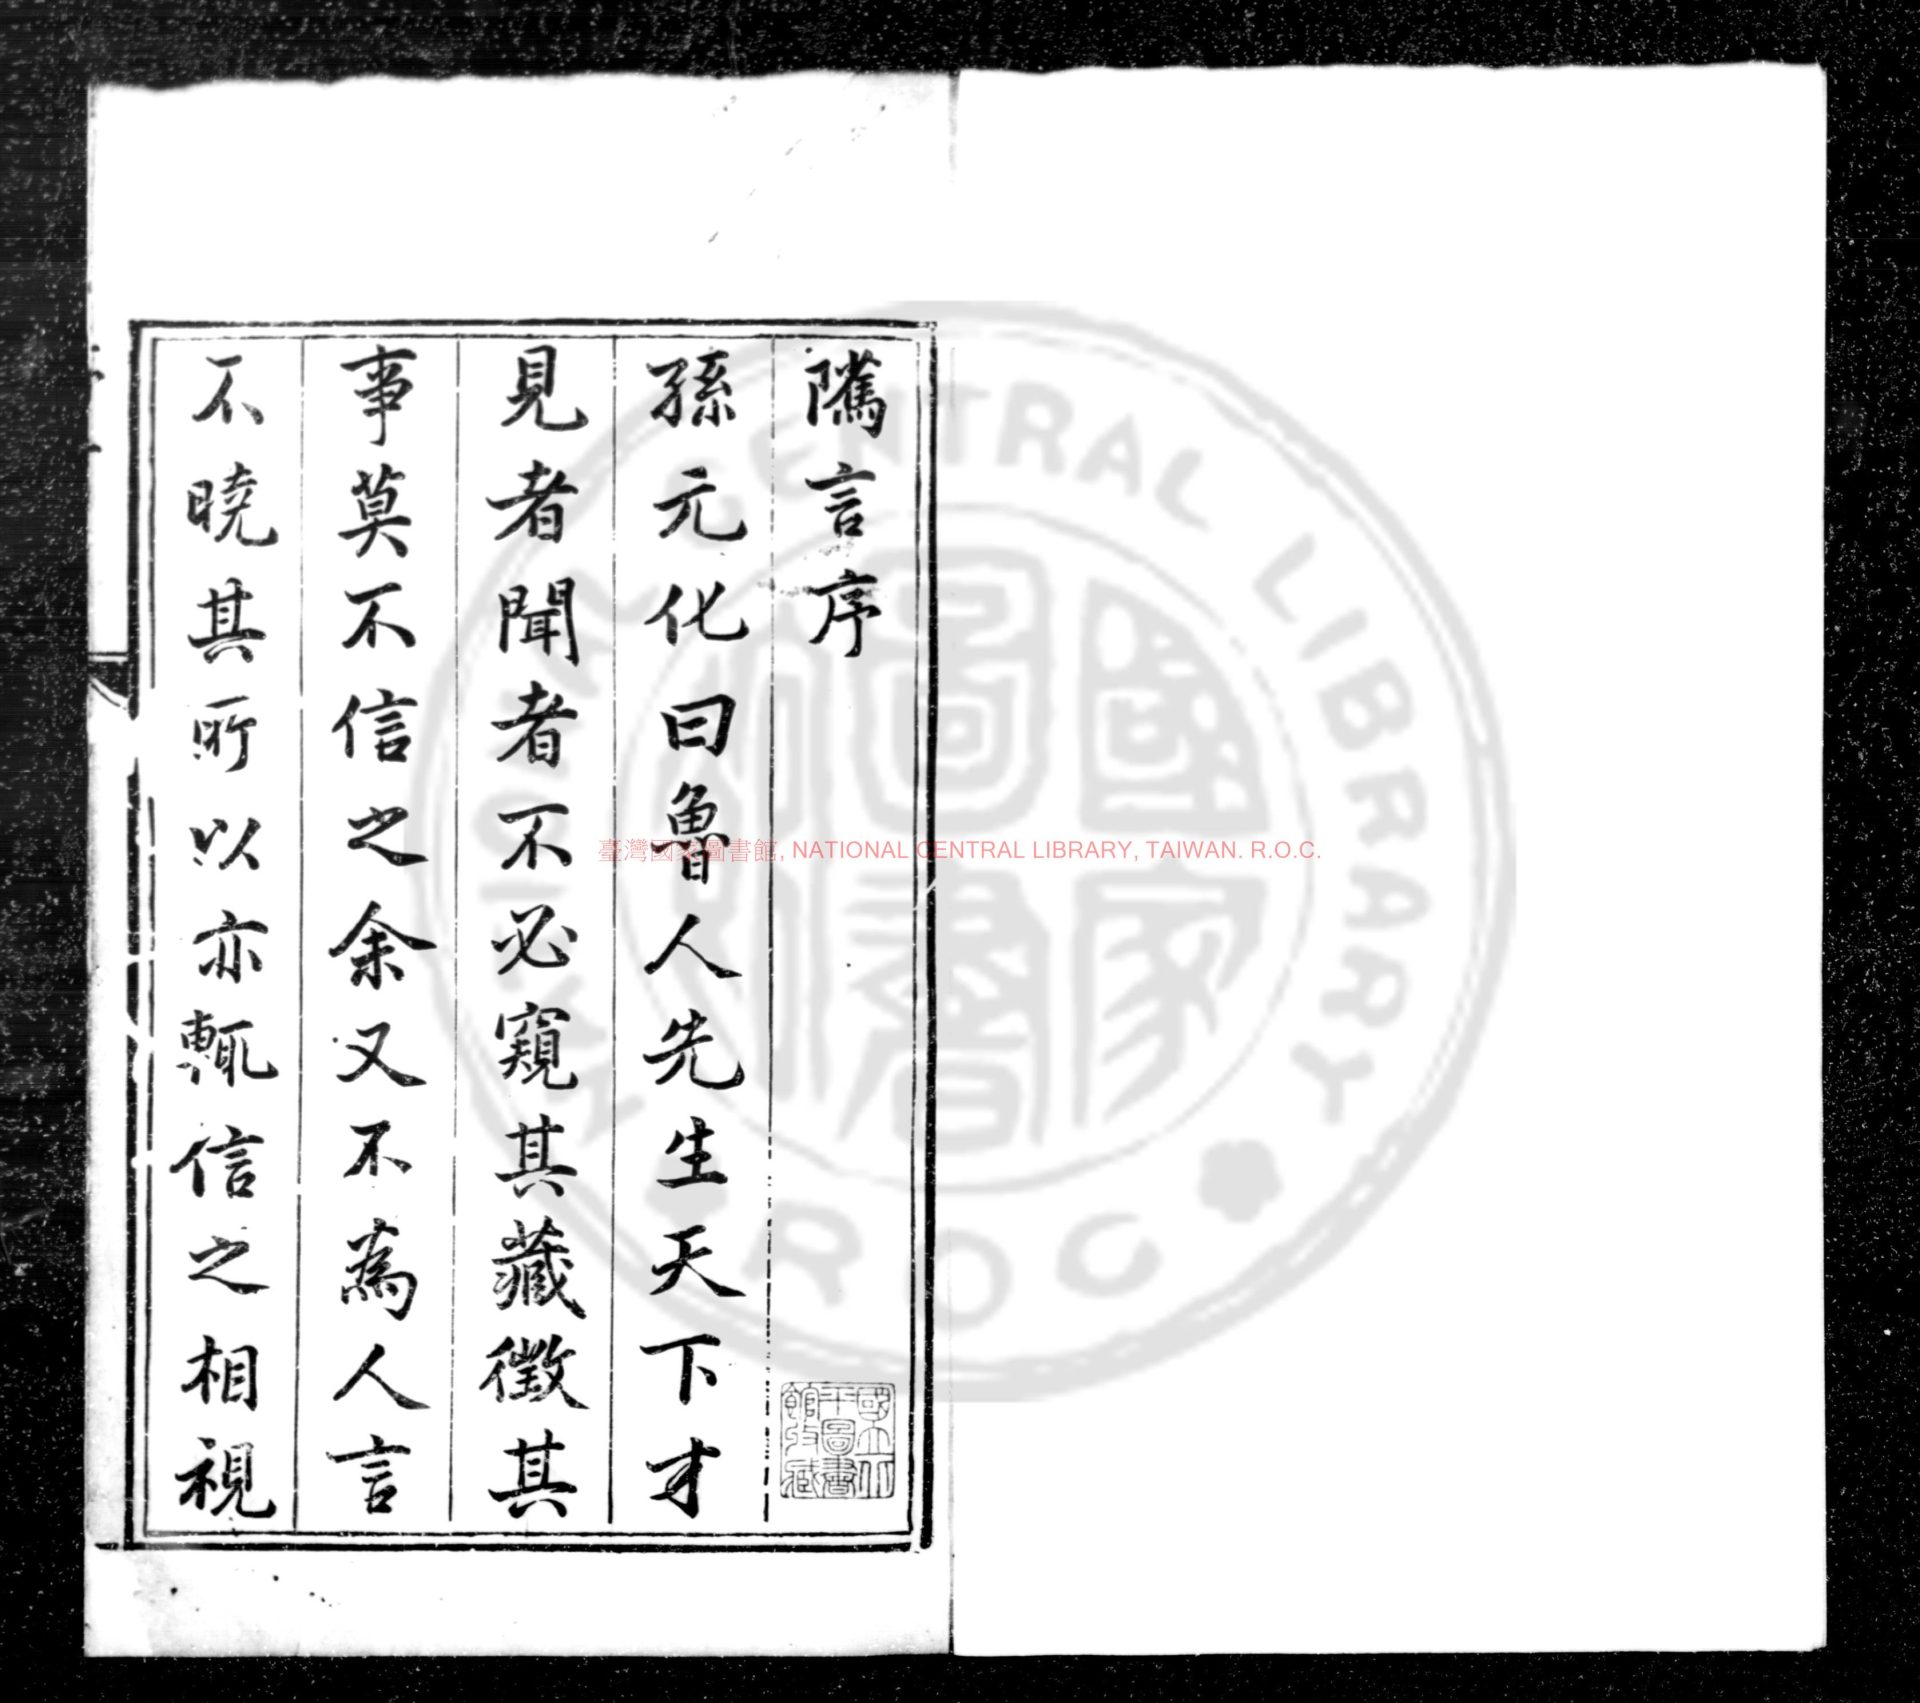 隲言序
孫元化曰魯人先生天下才
見者聞者不必窺其藏徵其
事莫不信之余又不為人言
不曉其所以亦輒信之相視
國立北
平圖書
館收藏
臺灣國家圖書館, NATIONAL CENTRAL LIBRARY, TAIWAN. R.O.C.
CENTRAL LIBRARY
R O C
國家
圖書